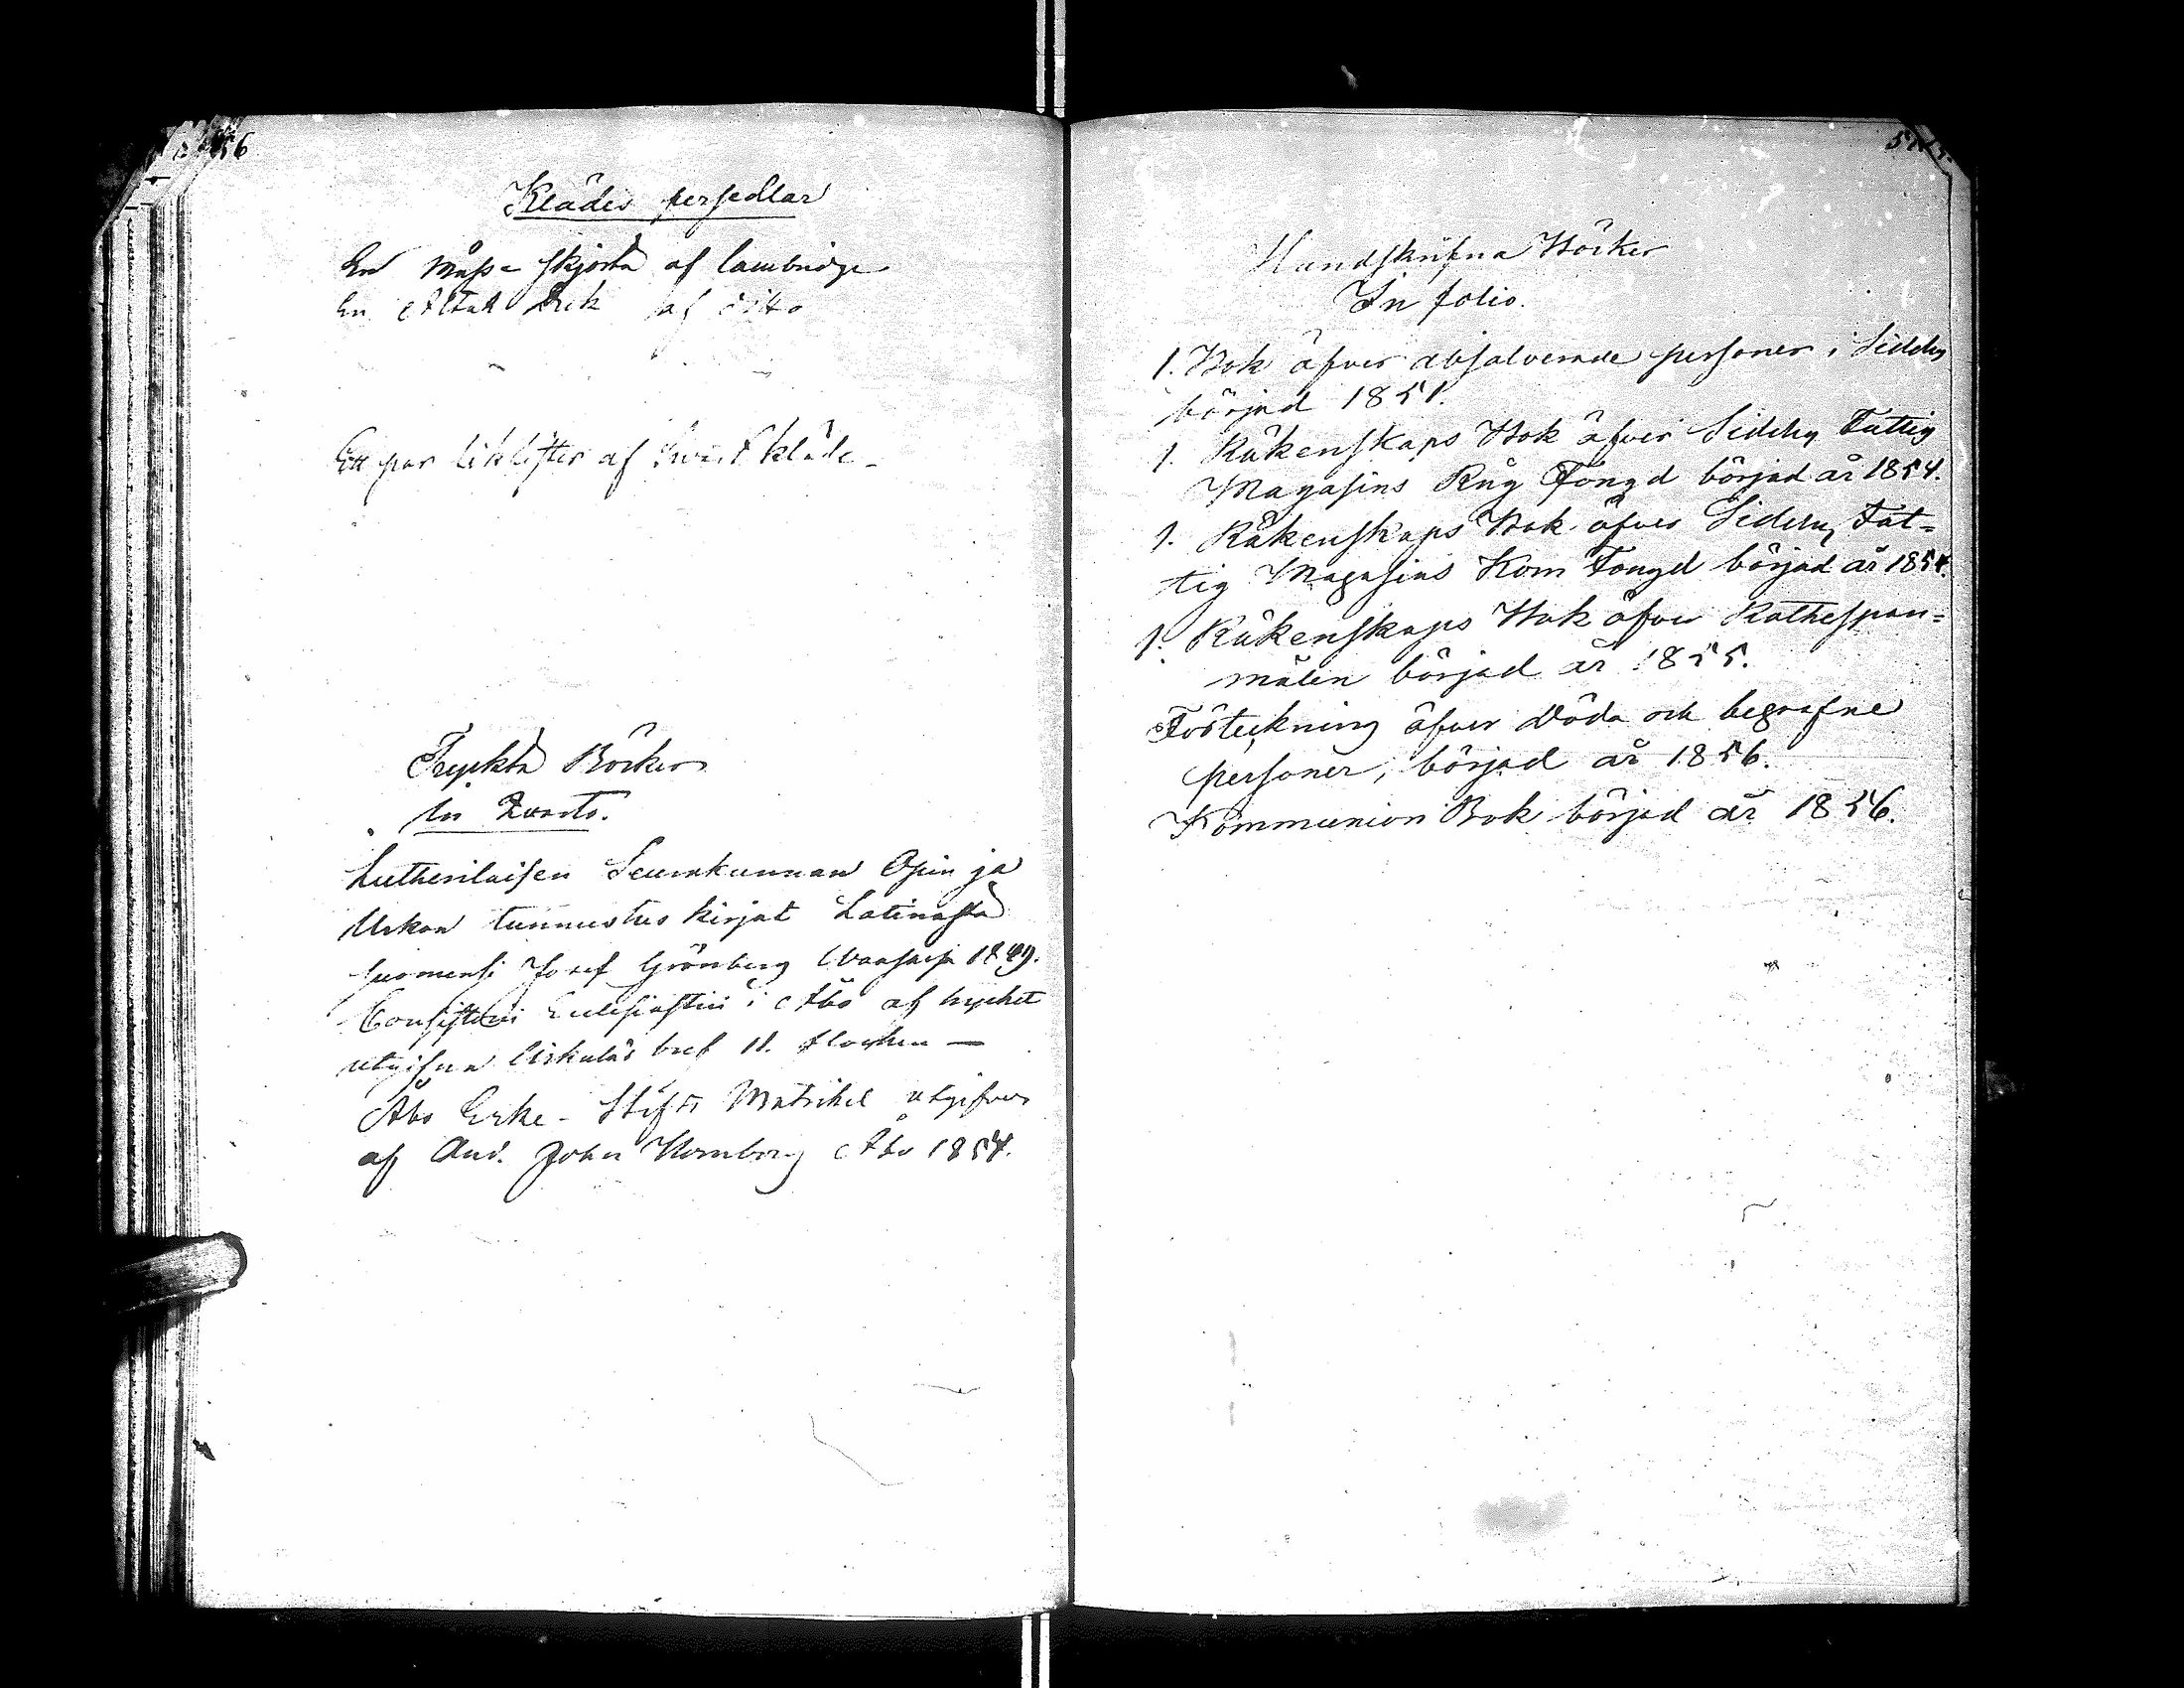 56
Kläder persedlar
En mäss-skjorta af Cambridge
En Altar duk af ditto
Ett par liklifter af Swart kläde-
Tryckta Böcker
In Quarto.
Lutherilaisen Seurakunnan Opin ja
Uskon tunnustus kirjat Latinasta
suomensi Josef Grönberg Waasassa 1849.
Consistorii Ecclesiastici i Åbo af trycket
utgifna Cirkulär bref 11.
Åbo Erke-Stifts Matrikel utgifven
af And. John Hornborg Åbo 1854.
Handskrifna Böcker
In folio.
1. Bok öfver absolverade personer i Sideby
börjad 1851.
1. Räkenskaps Bok öfver Sideby Fattig
Magasins Råg Fongd börjad år 1854.
1. Räkenskaps Bok öfver Sideby Fat-
tig Magasins Korn Fongd börjad år 1854.
1. Räkenskaps Bok öfver
målen börjad år 1855.
Förteckning öfver Döda och begrafne
personer, börjad år 1856.
Kommunion Bok börjad år 1856.